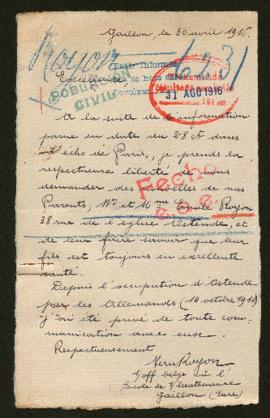 Gaillon, le 30 avril 1916.
Royon
31 AGO 1916
Excellence
POBLACIÓN
CIVIL
A la suite de l'information
parue en date du 28 ct dans
l'écho de Paris, je prends la
respectueuse liberté de vous
demander des nouvelles de mes
Parents, Mr et Mme Emile Royon
38 rue de l'écluse Ostende, et
de leur faire savoir que leur
fils est toujours en excellente
santé.
Fecho
Depuis l'occupation d'Ostende
par les Allemands (14 octobre 1914)
j'ai été privé de toute com-
munication avec eux.
Respectueusement
Royon
belge à l'
Ecole de
Gaillon (Eure)